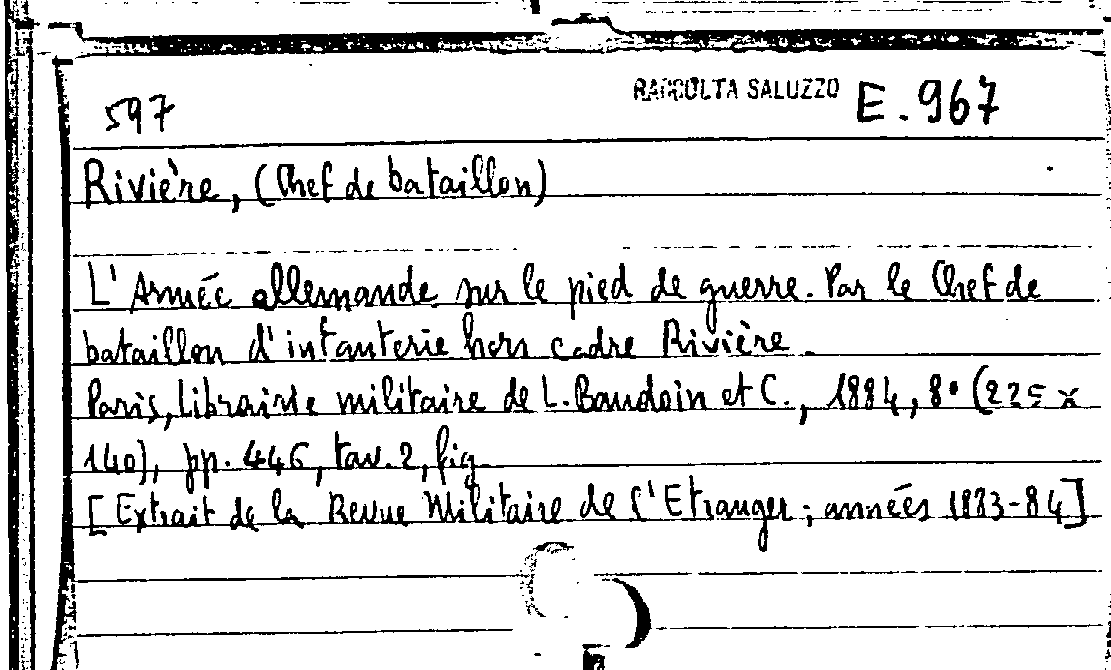 597 RACCOLTA SALUZZO E. 967
Rivière, (Chef de bataillon)
L'Armée allemande sur le pied de guerre. Par le Chef de
bataillon d'infanterie hors cadre Rivière.
Paris, Librairie militaire de L. Baudoin et C., 1884, 8° (225 x
140), pp. 446, tav. 2, fig.
[Extrait de la Revue Militaire de l'Etranger; années 1883-84]